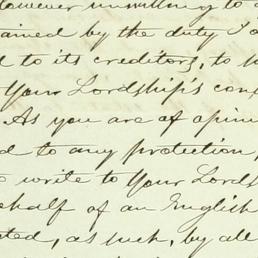 However unwilling to
ained by the duty I o
d to its creditors, to
Your Lordship's con
As you are of opin
d to any protection,
write to Your Lords
ehalf of an English
ted, as such, by all